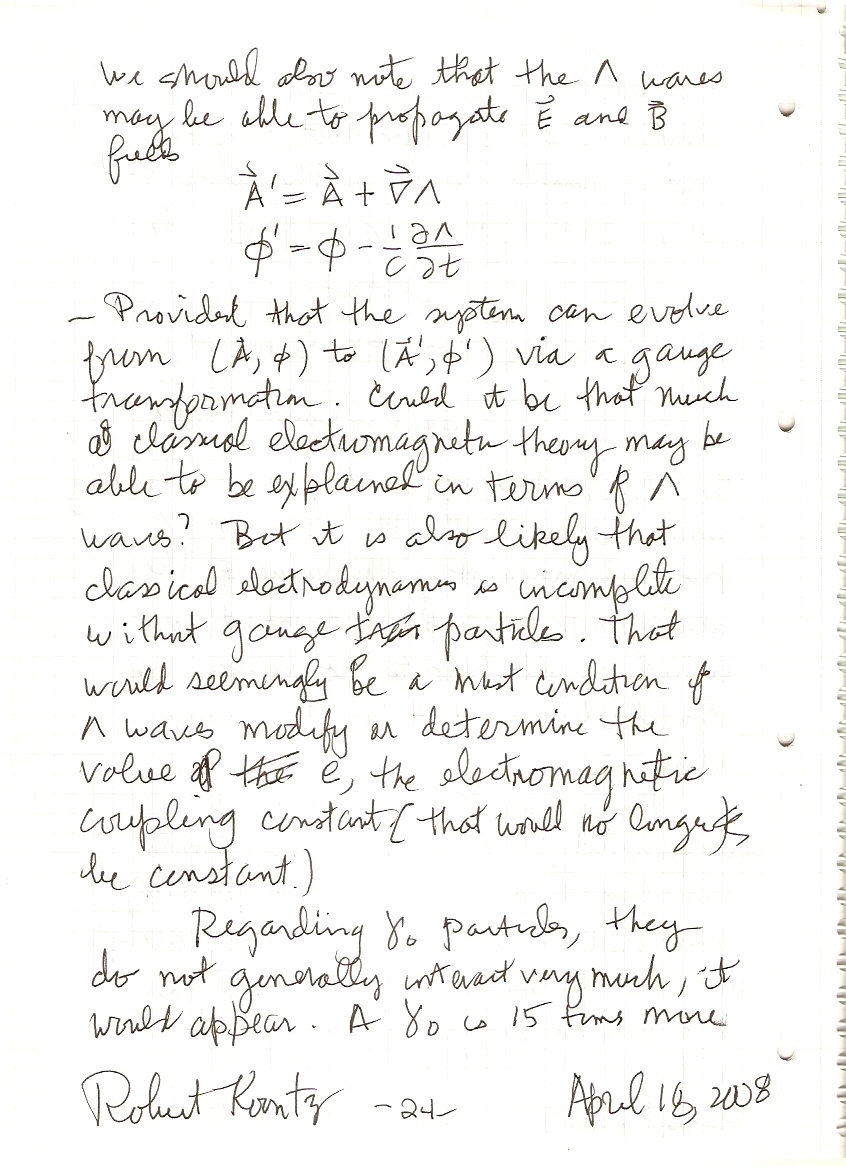 We should also note that the Λ waves
may be able to propagate E⃗ and B⃗
fields
A⃗' = A⃗ + ∇⃗Λ
ϕ' = ϕ - 1/c ∂Λ/∂t
– Provided that the system can evolve
from (A⃗, ϕ) to (A⃗', ϕ') via a gauge
transformation. Could it be that much
of classical electromagnetic theory may be
able to be explained in terms of Λ
waves? But it is also likely that
classical electrodynamics is incomplete
without gauge particles. That
would seemingly be a must condition if
Λ waves modify or determine the
value of the e, the electromagnetic
coupling constant (that would no longer
be constant.)
Regarding γ₀ particles, they
do not generally interact very much, it
would appear. A γ₀ is 15 times more
Robert Koontz -24- April 18, 2008